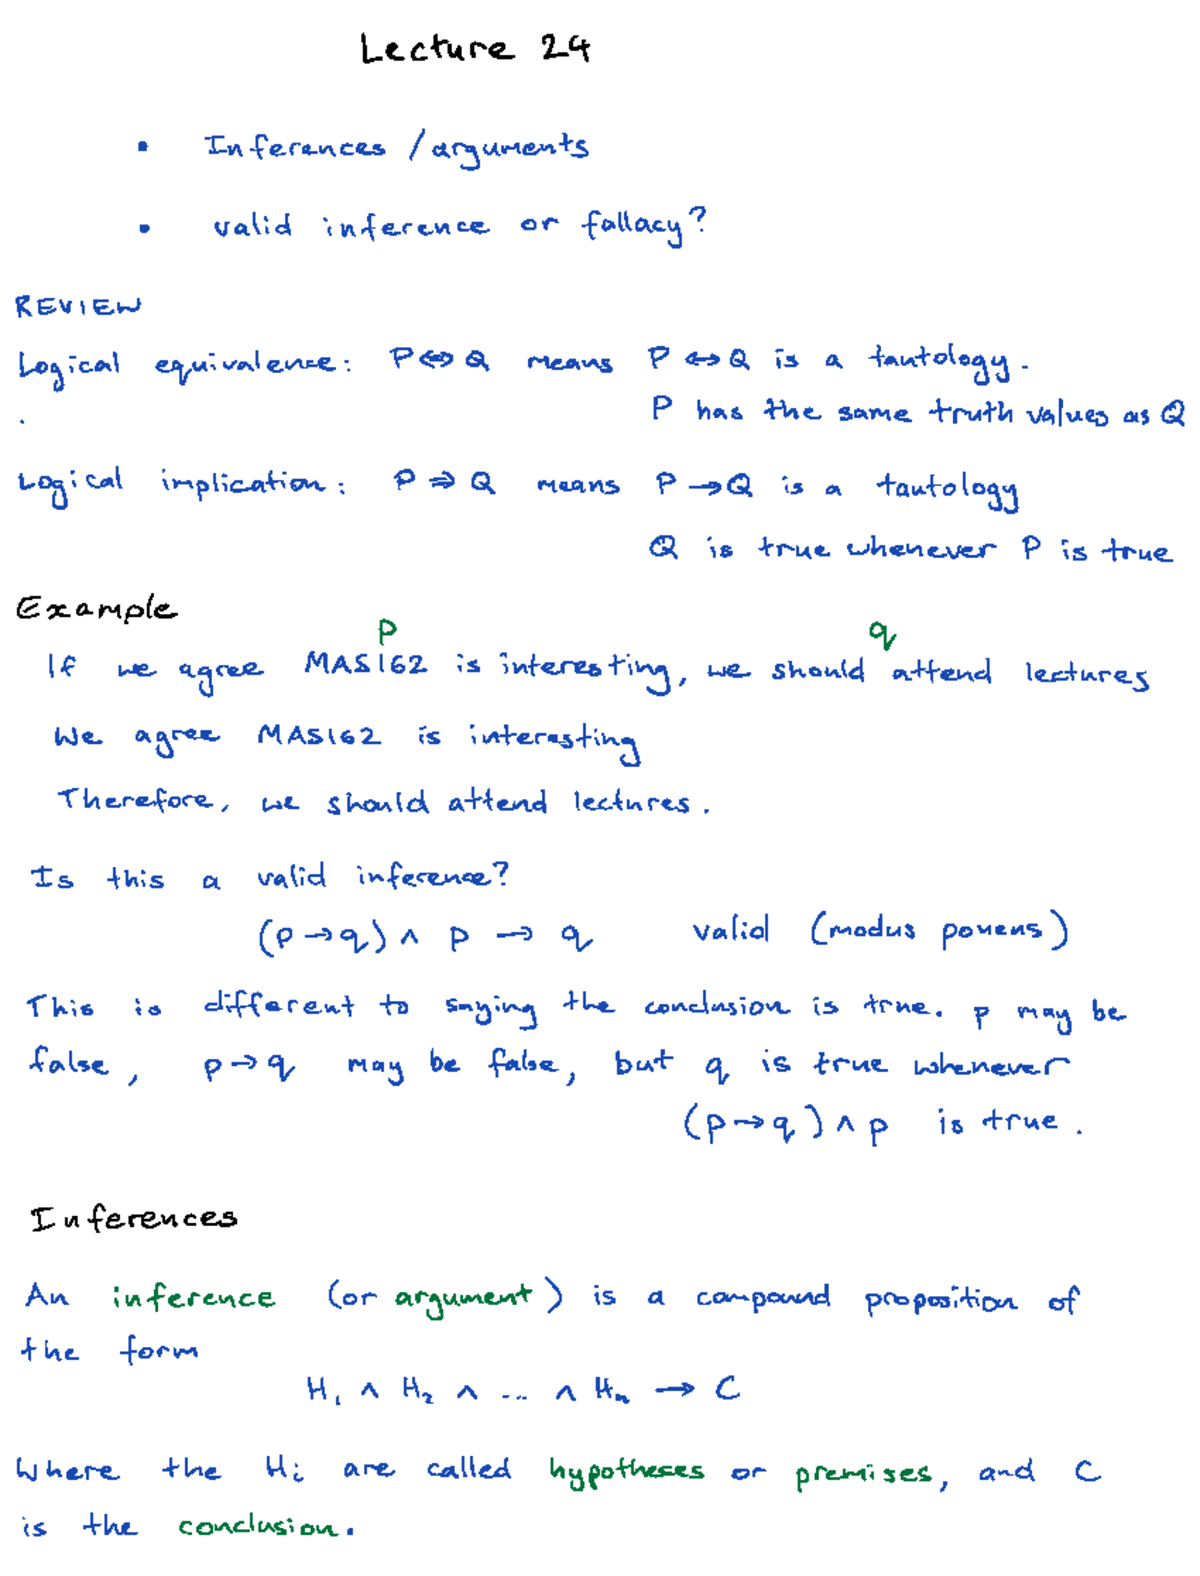 Lecture 24
• Inferences / arguments
• valid inference or fallacy?
REVIEW
Logical equivalence: P ⇔ Q means P ↔ Q is a tautology.
. P has the same truth values as Q
Logical implication: P ⇒ Q means P → Q is a tautology
Q is true whenever P is true
Example
p q
If we agree MAS162 is interesting, we should attend lectures
We agree MAS162 is interesting
Therefore, we should attend lectures.
Is this a valid inference?
(p → q) ∧ p → q valid (modus ponens)
This is different to saying the conclusion is true. p may be
false, p → q may be false, but q is true whenever
(p → q) ∧ p is true.
Inferences
An inference (or argument) is a compound proposition of
the form
H₁ ∧ H₂ ∧ ... ∧ Hₙ → C
Where the Hᵢ are called hypotheses or premises, and C
is the conclusion.